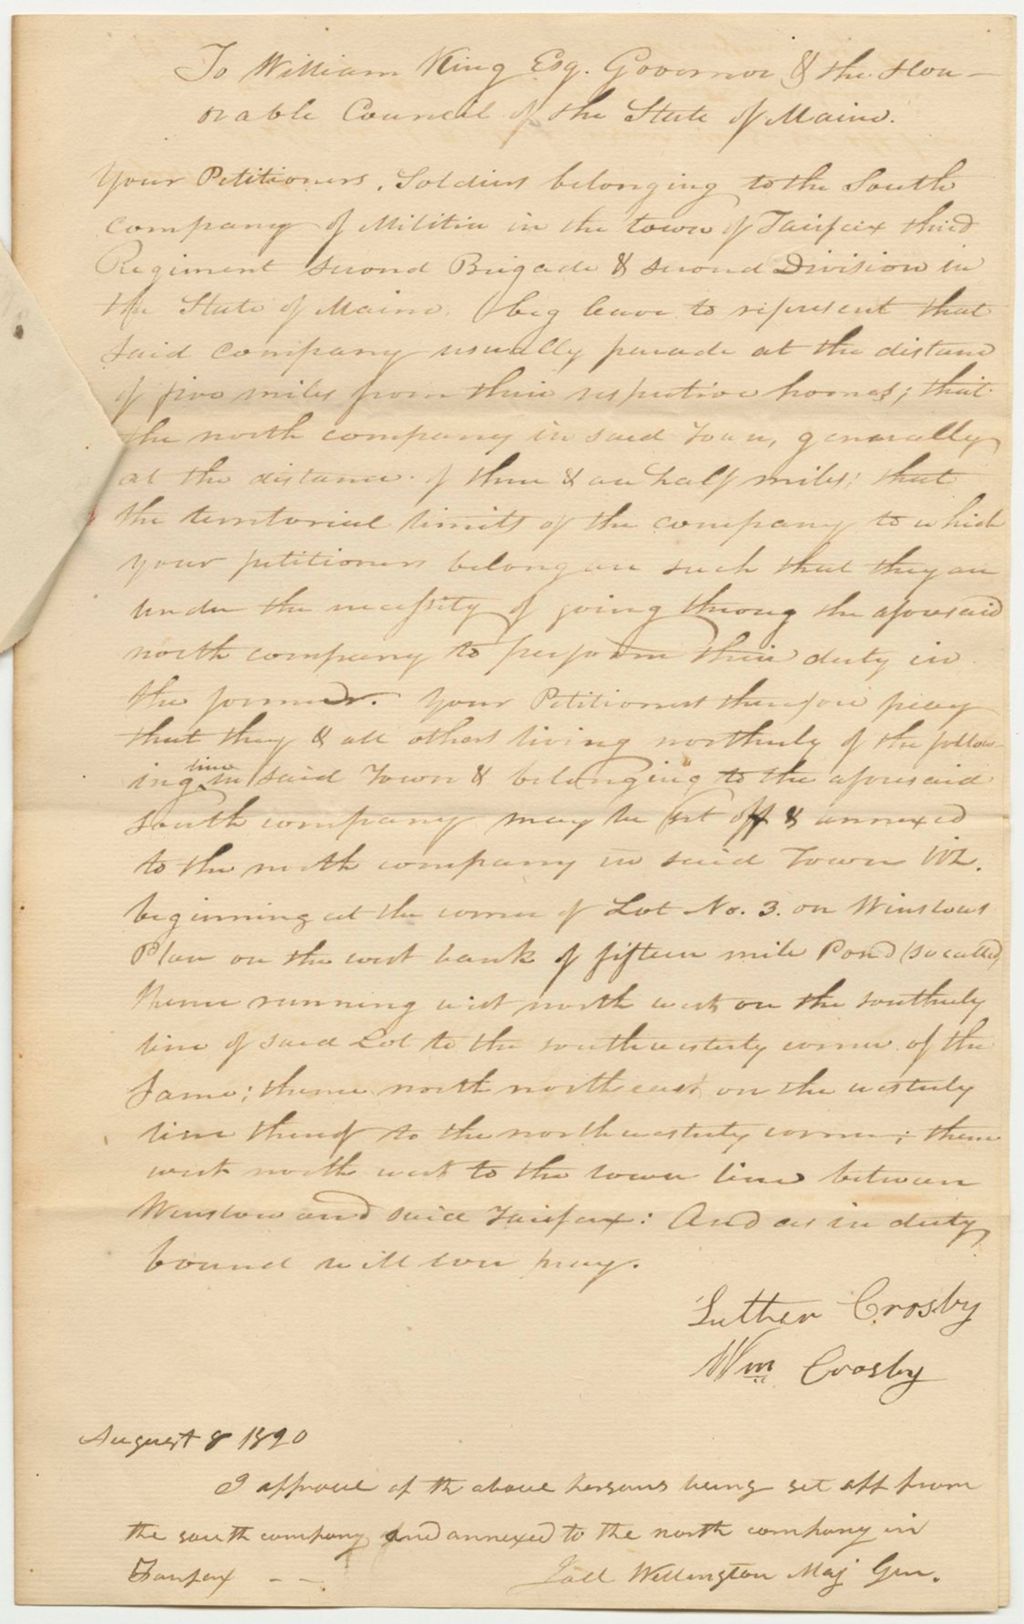 To William King Esq. Governor & the Hon-
orable Council of the State of Maine.
Your Petitioners, Soldiers belonging to the South
company of Militia in the town of Fairfax third
Regiment second Brigade & second Division in
the State of Maine, beg leave to represent that
said company usually parade at the distance
of five miles from their respective homes; that
the north company in said Town, generally
at the distance of three & an half miles; that
the territorial limits of the company to which
your petitioners belong are such that they are
under the necessity of going throug the aforesaid
north company to perform their duty in
the former. Your Petitioners therefore pray
that they & all others living northerly of the follow-
ing line in said Town & belonging to the aforesaid
south company may be set off & annexed
to the north company in said Town Viz.
beginning at the corner of Lot No. 3. on Winslows
Plan on the west bank of fifteen mile Pond (so called)
thence running west north west on the southerly
line of said Lot to the southwesterly corner of the
Same; thence north north east on the westerly
line thereof to the northwesterly corner; thence
west north west to the town line between
Winslow and said Fairfax: And as in duty
bound will ever pray.
Luther Crosby
Wm Crosby
August 8 1820
I approve of th above persons being set off from
the south company and annexed to the north company in
Fairfax - -
Joel Wellington Maj Gen.